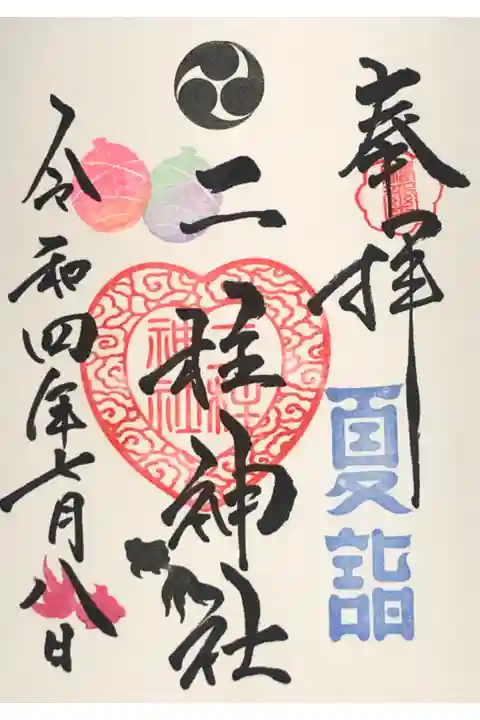 奉拝
夏詣
二柱神社
二柱
神社
令和四年七月八日